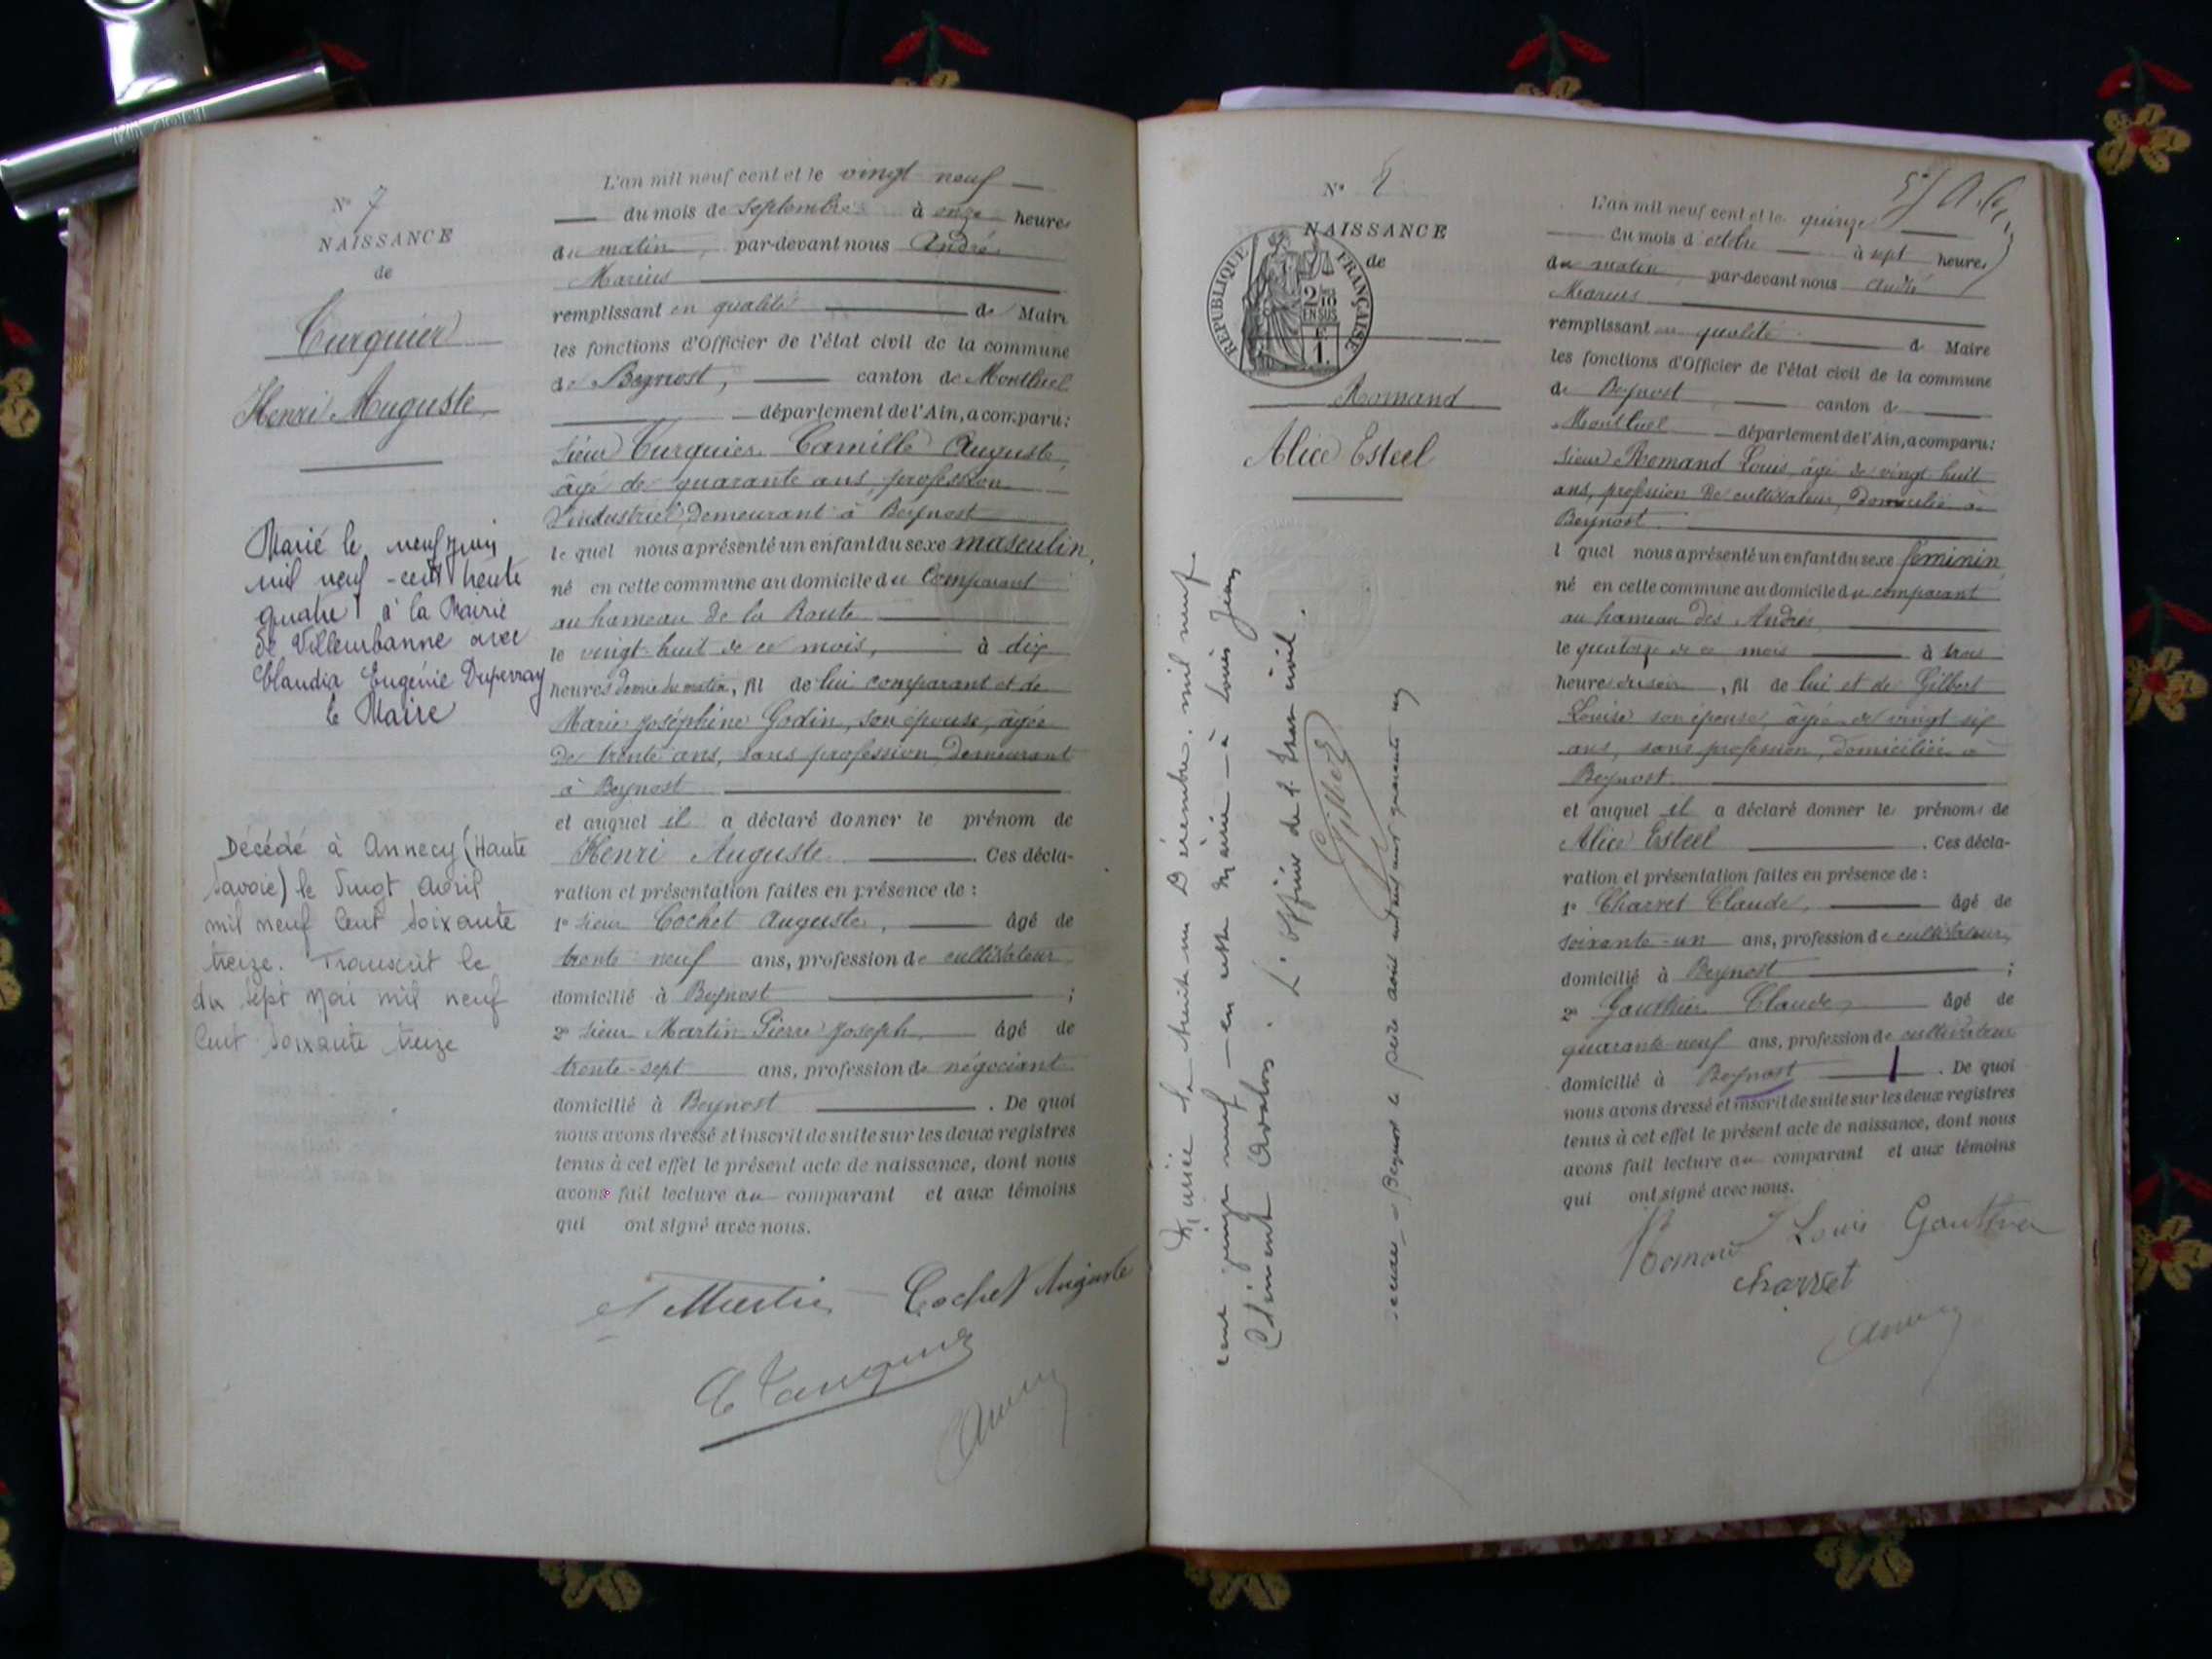 N° 7
NAISSANCE
de
Turquier
Henri Auguste
Marié le neuf juin
mil neuf-cent trente
quatre à la Mairie
de Villeurbanne avec
Claudia Eugénie Duperray
le Maire
Décédé à Annecy (Haute
Savoie) le vingt avril
mil neuf cent soixante
treize. Transcrit le
du sept mai mil neuf
cent soixante treize
L'an mil neuf cent et le vingt neuf
du mois de septembre à onze heures
du matin, par-devant nous André
Marius
remplissant en qualité de Maire
les fonctions d'Officier de l'état civil de la commune
de Beynost, canton de Montluel
département de l'Ain, a comparu:
sieur Turquier Camille Auguste,
âgé de quarante ans, profession
d'industriel, demeurant à Beynost
lequel nous a présenté un enfant du sexe masculin,
né en cette commune au domicile du comparant
au hameau de la Route
le vingt-huit de ce mois, à dix
heures demie du matin, fil de lui comparant et de
Marie Joséphine Godin, son épouse, âgée
de trente ans, sans profession, demeurant
à Beynost
et auquel il a déclaré donner le prénom de
Henri Auguste. Ces décla-
ration et présentation faites en présence de :
1° sieur Cochet Auguste, âgé de
trente neuf ans, profession de cultivateur
domicilié à Beynost ;
2° sieur Martin Pierre Joseph, âgé de
trente-sept ans, profession de négociant
domicilié à Beynost. De quoi
nous avons dressé et inscrit de suite sur les deux registres
tenus à cet effet le présent acte de naissance, dont nous
avons fait lecture au comparant et aux témoins
qui ont signé avec nous.
Martin Cochet Auguste
N° 8
NAISSANCE
de
RÉPUBLIQUE FRANÇAISE
2/10
EN SUS
F
1.
Romand
Alice Esteel
Mariée le trente un Décembre mil neuf
cent vingt neuf - en cette Mairie - à Louis Jean
Clément Avalos. L'officier de l'état civil.
Gillet
Beynost le seize août mil neuf cent quarante
L'an mil neuf cent et le quinze
du mois d'octobre à sept heures
du matin par-devant nous André
Marius
remplissant en qualité de Maire
les fonctions d'Officier de l'état civil de la commune
de Beynost canton de
Montluel département de l'Ain, a comparu:
sieur Romand Louis, âgé de vingt huit
ans, profession de cultivateur, domicilié à
Beynost
lquel nous a présenté un enfant du sexe féminin,
né en cette commune au domicile du comparant
au hameau des Andrés
le quatorze de ce mois à trois
heures du soir, fil de lui et de Gilbert
Louise son épouse, âgée de vingt six
ans, sans profession, domiciliée à
Beynost
et auquel il a déclaré donner les prénoms de
Alice Esteel. Ces décla-
ration et présentation faites en présence de :
1° Charvet Claude, âgé de
soixante-un ans, profession de cultivateur,
domicilié à Beynost ;
2° Gauthier Claude, âgé de
quarante-neuf ans, profession de cultivateur
domicilié à Beynost. De quoi
nous avons dressé et inscrit de suite sur les deux registres
tenus à cet effet le présent acte de naissance, dont nous
avons fait lecture au comparant et aux témoins
qui ont signé avec nous.
Romand Louis Gauthier
Charvet